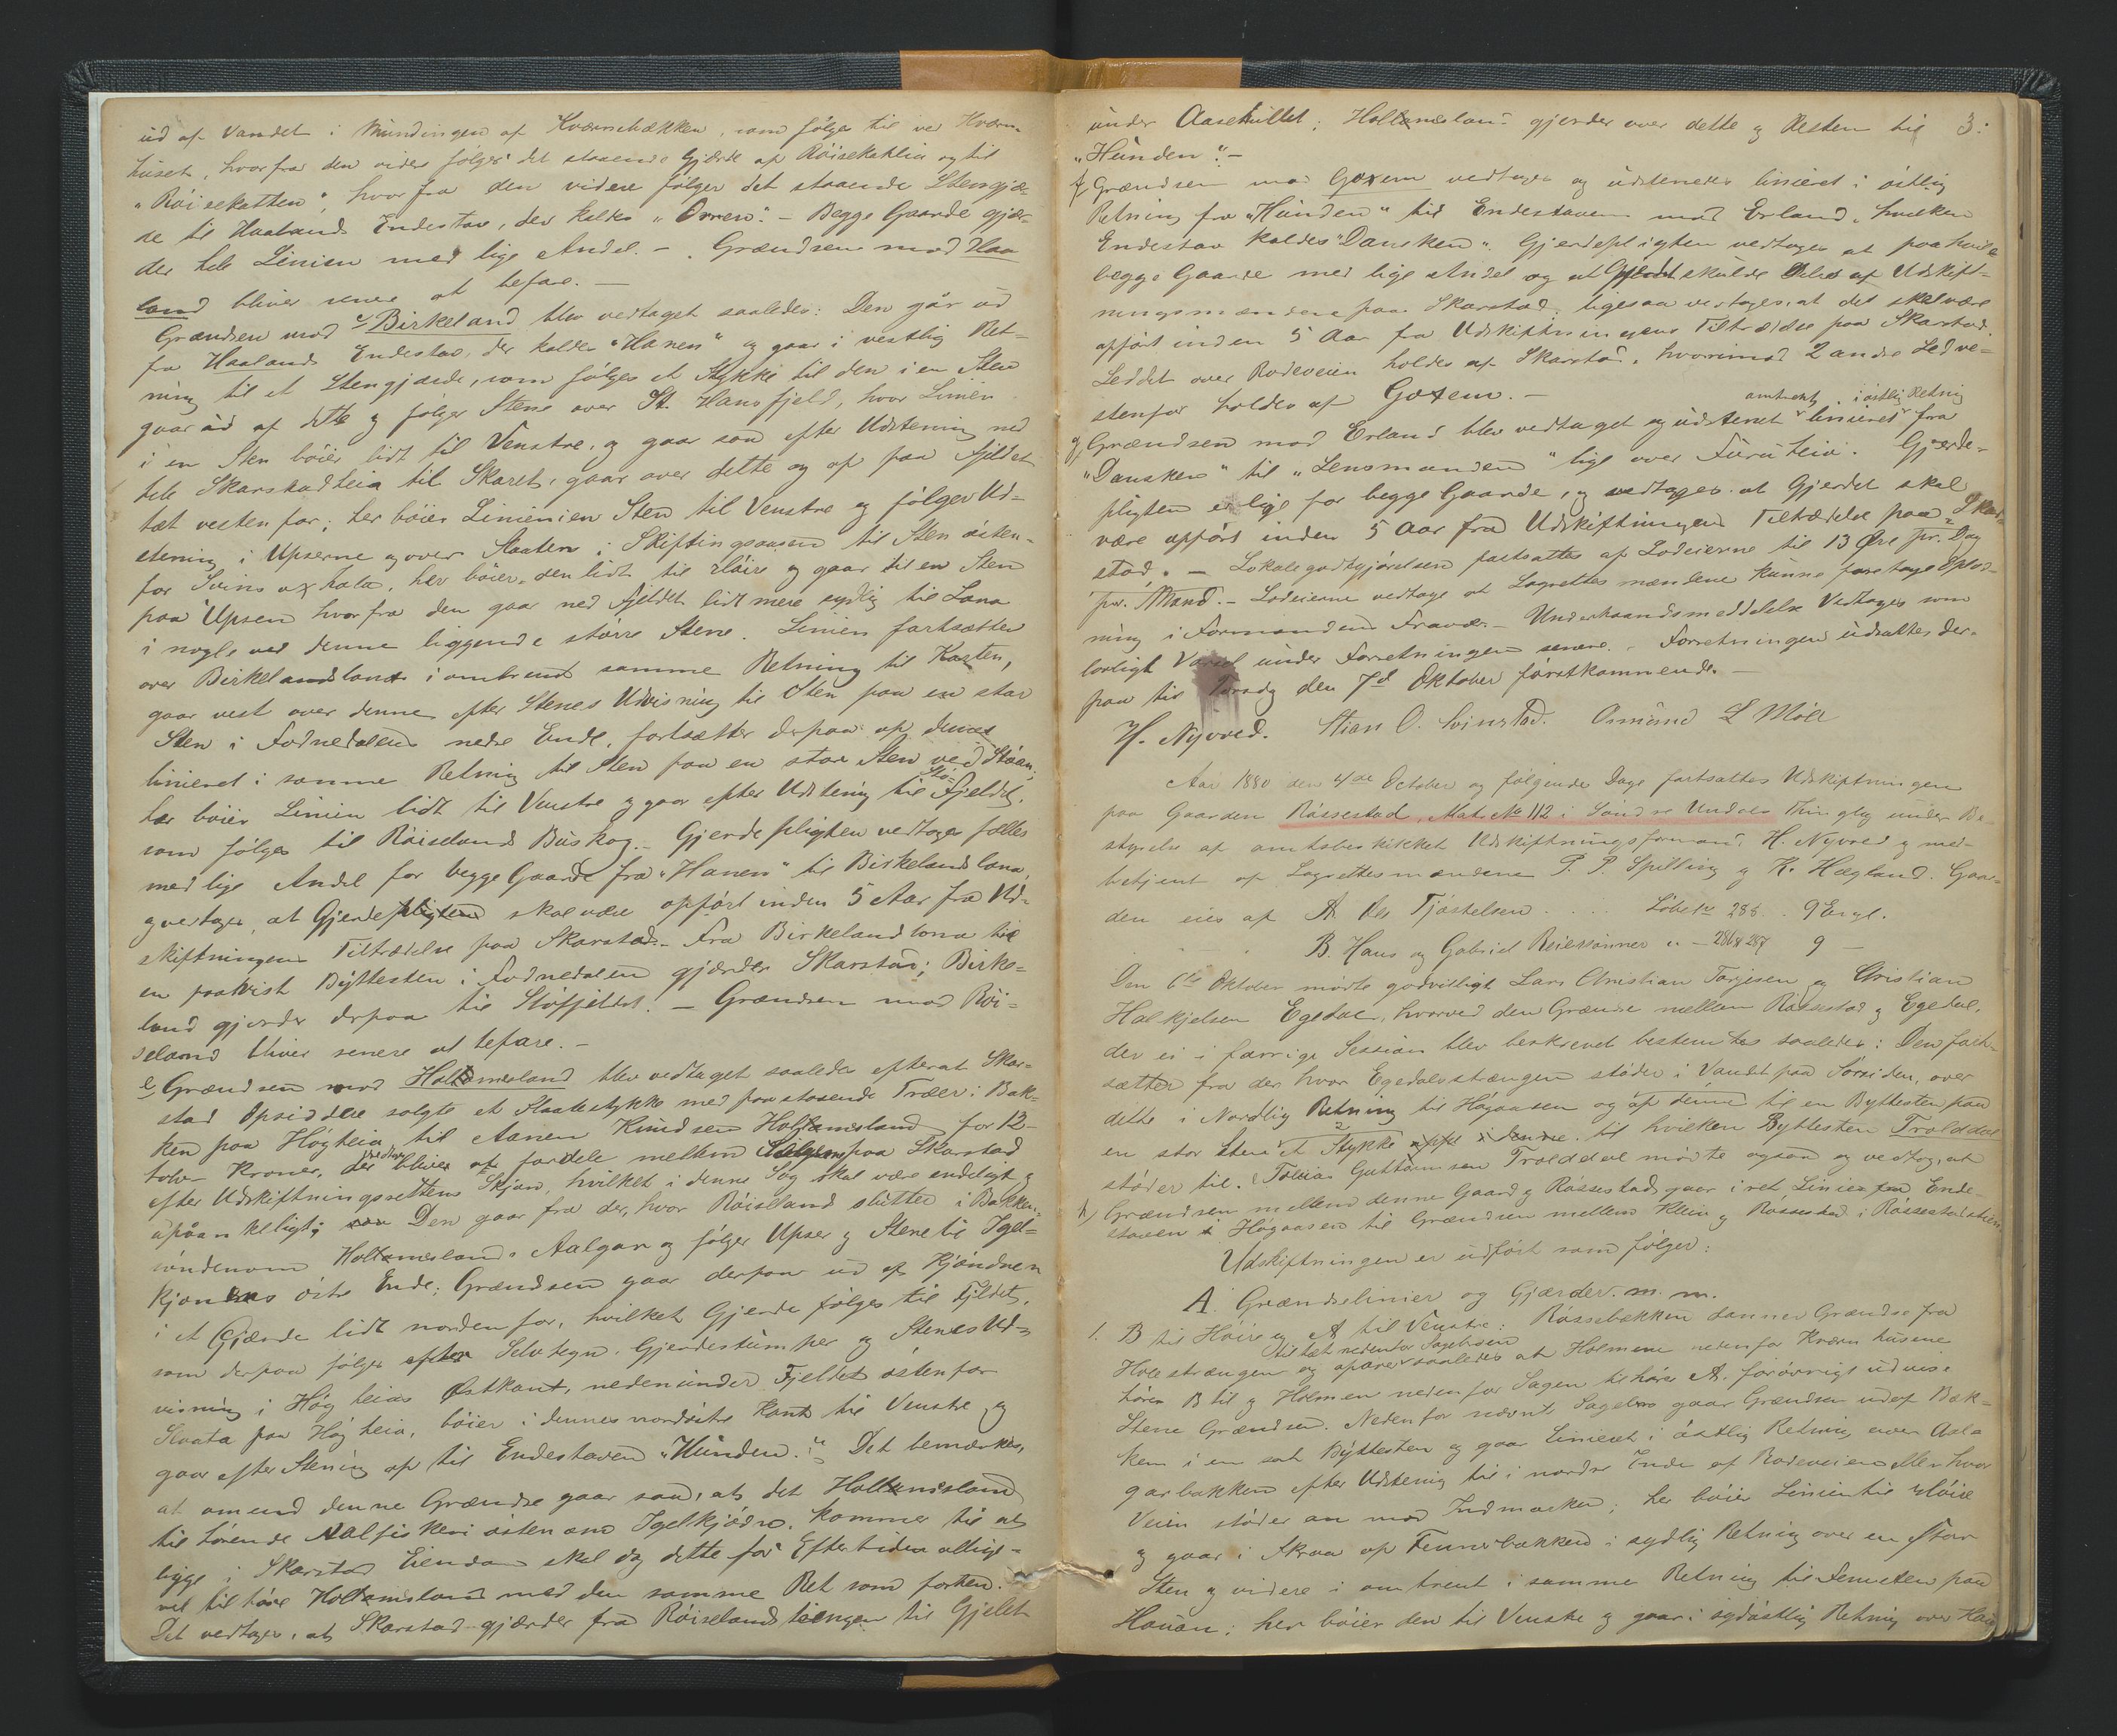 ud af Vandet i Mundingen af Kværnebækken, som følges til ved Kværn-
huset, hvorfra den videre følger det staaende Gjærde af Röisekatlia og til
"Röisekatten"; hvorfra den videre følger det staaende Stengjær-
de til Haalands Endestav, der kaldes "Orren". - Begge Gaarde gjær-
der hele Linien med lige Andel. - Grændsen mod Haa
land bliver senere at befare. -
Grændsen mod Birkeland blev vedtaget saaledes: Den går ud
fra Haalands Endestav, der kaldes "Hanen" og gaar i vestlig Ret-
ning til et Stengjærde, som følges et Stykke til den i en Sten
gaar ud af dette og følger Stene over St. Hansfjeld, hvor Linien
i en Sten böier lidt til Venstre, og gaar saa efter Udstening ned
hele Skarstadheia til Skaret, gaar over dette og op paa Fjeldet
tæt vesten for; her böier Linien i en Sten til Venstre og følger Ud-
stening i Upserne og over Slaaten i Skiftingsaasen til Sten östen-
for Svins hala, her böier den lidt til Höire og gaar til en Sten
paa Upsen hvorfra den gaar ned Fjeldet lidt mere sydlig til Lona
i nogle ved denne liggende större Stene. Linien fortsætter
over Birkelandslona i omtrent samme Retning til Kasten,
gaar vest over denne efter Stenes Udvisning til Sten paa en stor
Sten i Fodnedalens nedre Ende, fortsætter derpaa op denne
linieret i samme Retning til Sten paa en stor Sten ved Stöan;
her böier Linien lidt til Venstre og gaar efter Udstening til Stö-Fjeldet,
som følges til Röiselands Buskog. - Gjerdepligten vedtages fælles
med lige Andel for begge Gaarde fra "Hanen" til Birkelandslona,
og vedtages, at Gjerdepligten skal være opfört inden 5 Aar fra Ud-
skiftningens Tiltrædelse paa Skarstad. - Fra Birkelandslona til
en paavist Byttesten i Fodnedalen gjærder Skarstad; Birke-
land gjerder derpaa til Stöfjeldet. - Grændsen mod Röi-
seland bliver senere at befare. -
e Grændsen mod Holtamesland blev vedtaget saaledes efterat Skar-
stad Opsiddere solgte et Slaatestykke med paastaaende Træer i Bak-
ken paa Högheia til Aanen Knudsen Holtamesland for 12-
tolv- Kroner, der bliver at fordele mellem Sælgerne paa Skarstad
efter Udskiftningsrettens Skjøn, hvilket i denne Sag skal være endeligt og
upåankeligt; Den gaar fra der, hvor Röiseland slutter i Bakken,
söndenom Holtameslands Aalgar og følger Upser og Stene til Igel-
kjönnes östre Ende; Grændsen gaar derpaa ud af Kjöndnen
i et Gjærde lidt nordenfor, hvilket Gjerde følges til Fjeldet,
som derpaa følges efter Selvtegn. Gjerdestumper og Stenes Ud-
visning i Högheias Østkant, nedenunder Fjeldet östenfor
Slaata paa Högheia, böier i dennes nordöstre Kant til Venstre og
gaar efter Stening op til Endestaven "Hunden". Det bemærkes,
at omend denne Grændse gaar saa, at det Holtamesland
tilhörende Aalfiskeri östenom Igelkjödn. kommer til at
ligge i Skarstad Eiendom skal dog dette for Eftertiden allige-
vel tilhöre Holtamesland med den samme Ret som forhen.
Det vedtages, at Skarstad gjærder fra Röiselands til Gjelet
under Aasehullet; Holtamesland gjerder over dette og Resten til 3:
"Hunden". -
f, Grændsen mod Goxem vedtages og udstenedes linieret i östlig
Retning fra "Hunden" til Endestaven mod Erland, hvilken
Endestav kaldes "Dansken". Gjerdepligten vedtages at paahvile
begge Gaarde med lige Andel og at Gjerdet skulde deles af Udskift-
ningsmændene paa Skarstad, ligesaa vedtages, at det skal være
opfört inden 5 Aar fra Udskiftningens Tiltrædelse paa Skarstad.
Leddet over Rodeveien holdes af Skarstad, hvorimod 2 andre Led ve-
stenfor holdes af Goxem. -
omtrent i östlig Retning
g, Grændsen mod Erland blev vedtaget og udstenet linieret fra
"Dansken" til "Lensmanden" lige over Furuheia. Gjerde-
pligten er lige for begge Gaarde, og vedtages at Gjerdet skal
være opfört inden 5 Aar fra Udskiftningens Tiltrædelse paa Skar-
stad. - Lokalegodtgjörelsen fastsattes af Lodeierne til 13 Øre pr. Dag
pr. Mand. - Lodeierne vedtage at Lagrettesmændene kunne foretage Oplod-
ning i Formandens Fravær. - Underhaandsmeddelelse Vedtages som
lovligt Varsel under Forretningen senere. - Forretningen udsattes der-
paa til Torsdag den 7d Oktober förstkommende. -
H. Nyvoed. Stian O. Svinstad. Osmund L Möll
Aar 1880 den 4de October og følgende Dage fortsattes Udskiftningen
paa Gaarden Råssestad, Matr. No 112 i Söndre Undals Thinglag under Be-
styrelse af amtsbeskikket Udskiftningsformand H. Nyvoed og med-
betjent af Lagrettesmændene P. P. Spilling og K. Hægland. Gaar-
den eies af A. Tjöstelsen .... Löbe No 285 .. 9 Engl.
B. Hans og Gabriel Reiersönner " - 286 & 287 9 -
Den 6te Oktober mödte godvilligt Lars Christian Tarjesen og Christian
Halkjelsen Egedal, hvorved den Grændse mellem Råssestad og Egedal,
der ei i forrige Session blev beskrevet bestemtes saaledes: Den fort-
sætter fra der hvor Egedalsstrængen støder i Vandet paa Sörsiden, over
dette i Nordlig Retning til Högaasen og op denne til en Byttesten paa
en stor Sten et Stykke oppe i denne. til hvilken Byttesten Trolddal
støder til. Tobias Guttormsen Trolddal mödte ogsaa og vedtog, at
h) Grændsen mellem denne Gaard og Råssestad gaar i ret Linie fra Ende-
staven i Högaasen til Grændsen mellem Kleiv og Råssestad i Råssestadheien
Udskiftningen er udfört som følger:
A. Grændselinier og Gjærder m. m.
1. B til Höire og A til Venstre: Råssebækken danner Grændse fra
til tæt nedenfor Sagebroen
Holestrængen og opover saaledes at Holmene nedenfor Kværnhusene
hörer B til og Holmen nedenfor Sagen tilhörer A. foröövrigt udvise
Stene Grændsen. Nedenfor nævnte Sagebro gaar Grændsen ud af Bæk-
ken i en sat Byttesten og gaar linieret i östlig Retning over Aal-
garbakken efter Udstening til i nordre Ende af Rodeveien eller hvor
Veien støder an mod Indmarken; her böier Linien til Höire
og gaar i Skraa op Tennerbakken i sydlig Retning over en stor
Sten og videre i omtrent i samme Retning til Stenen paa
Hauån; her böier den til Venstre og gaar i sydöstlig Retning over